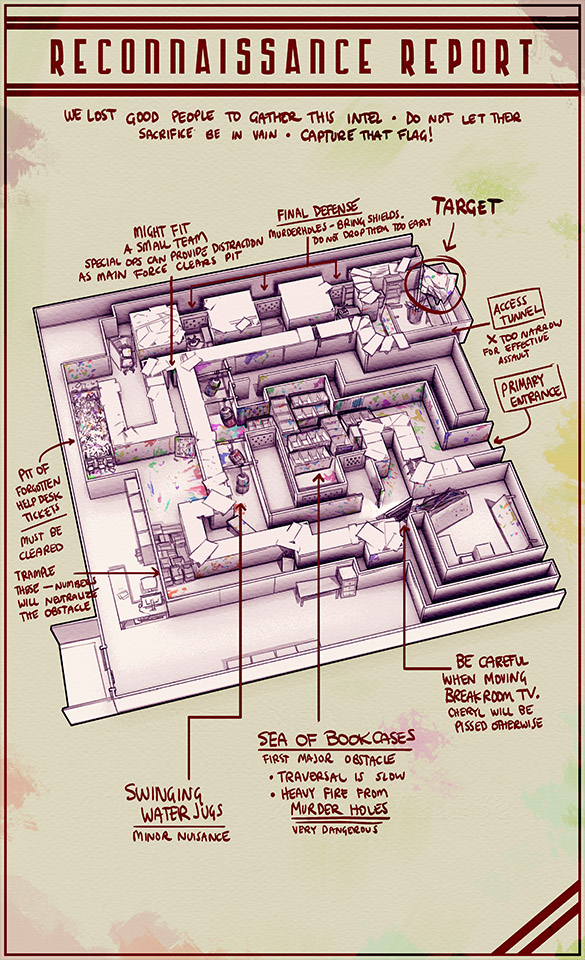 RECONNAISSANCE REPORT
WE LOST GOOD PEOPLE TO GATHER THIS INTEL • DO NOT LET THEIR
SACRIFICE BE IN VAIN • CAPTURE THAT FLAG!
MIGHT FIT
A SMALL TEAM
SPECIAL OPS CAN PROVIDE DISTRACTION
AS MAIN FORCE CLEARS PIT
FINAL DEFENSE
MURDERHOLES - BRING SHIELDS.
DO NOT DROP THEM TOO EARLY
TARGET
ACCESS
TUNNEL
X TOO NARROW
FOR EFFECTIVE
ASSAULT
PRIMARY
ENTRANCE
PIT OF
FORGOTTEN
HELP DESK
TICKETS
MUST BE
CLEARED
TRAMPLE
THOSE - NUMBERS
WILL NEUTRALIZE
THE OBSTACLE
BE CAREFUL
WHEN MOVING
BREAKROOM TV.
CHERYL WILL BE
PISSED OTHERWISE
SEA OF BOOKCASES
FIRST MAJOR OBSTACLE
• TRAVERSAL IS SLOW
• HEAVY FIRE FROM
MURDER HOLES
VERY DANGEROUS
SWINGING
WATER JUGS
MINOR NUISANCE